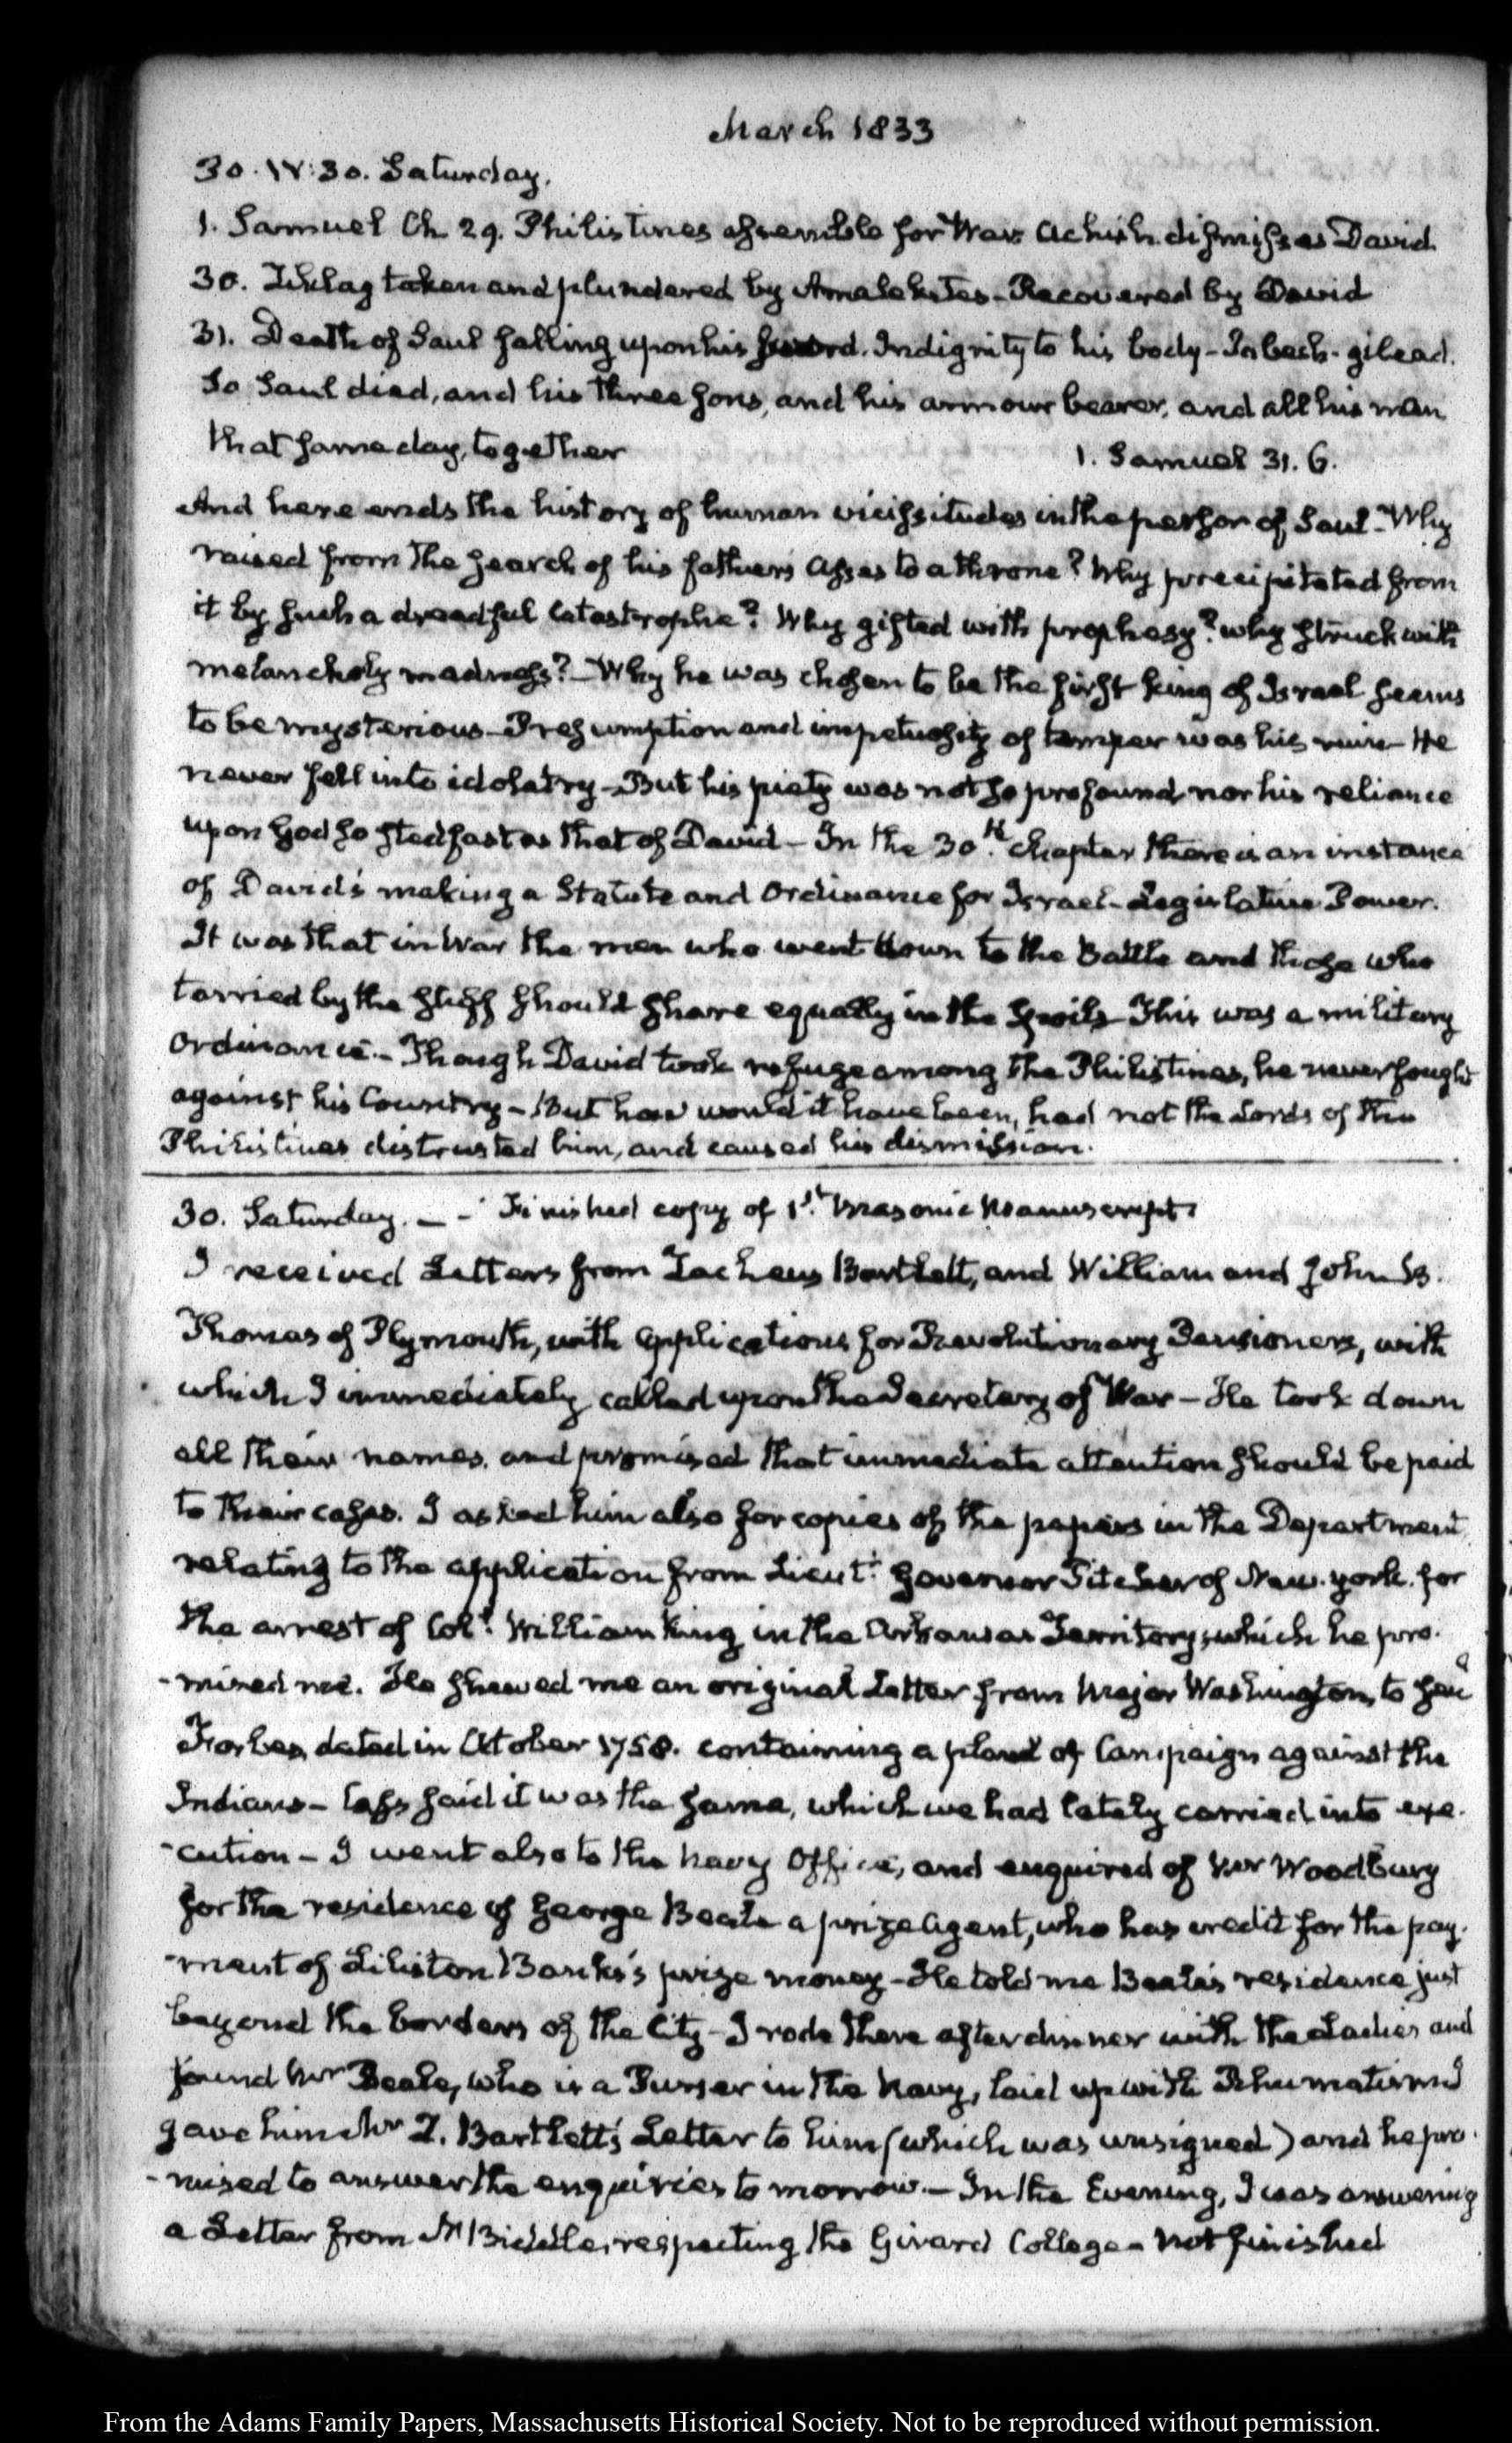 March 1833
30. IV:30. Saturday.
1. Samuel Ch 29. Philistines assemble for War. Achish dismisses David
30. Ziklag taken and plundered by Amalekites - Recovered by David
31. Death of Saul falling upon his sword. Indignity to his body - Jabesh-gilead.
So Saul died, and his three sons, and his armour bearer, and all his men
that same day, together 1. Samuel 31. 6.
And here ends the history of human vicissitudes in the person of Saul - Why
raised from the search of his father's asses to a throne? Why precipitated from
it by such a dreadful catastrophe? Why gifted with prophesy? why struck with
melancholy madness? - Why he was chosen to be the first king of Israel seems
to be mysterious - Presumption and impetuosity of temper was his ruin - He
never fell into idolatry - But his piety was not so profound nor his reliance
upon God so stedfast as that of David - In the 30th. chapter there is an instance
of David's making a Statute and Ordinance for Israel - Legislative Power.
It was that in War the men who went down to the Battle and those who
tarried by the stuff should share equally in the spoils - This was a military
Ordinance. - Though David took refuge among the Philistines, he never fought
against his Country - But how would it have been, had not the Lords of the
Philistines distrusted him, and caused his dismission.
30. Saturday. - - Finished copy of 1st. Masonic Manuscript.
I received Letters from Zacheus Bartlett, and William and John B.
Thomas of Plymouth, with applications for Revolutionary Pensioners, with
which I immediately called upon the Secretary of War - He took down
all their names, and promised that immediate attention should be paid
to their cases. I asked him also for copies of the papers in the Department
relating to the application from Lieut: Governor Pitcher of New-York, for
the arrest of Coll. William King in the Arkansas Territory, which he pro-
-mised me. He shewed me an original Letter from Major Washington, to Genl
Forbes, dated in October 1758. containing a plan of Campaign against the
Indians - Cass said it was the same, which we had lately carried into exe-
-cution - I went also to the Navy Office, and enquired of Mr Woodbury
for the residence of George Beale a prize Agent, who has credit for the pay-
-ment of Liliston Banks's prize money - He told me Beale's residence just
beyond the borders of the City - I rode there after dinner with the Ladies and
found Mr Beale, who is a Purser in the Navy, laid up with Rheumatism I
gave him Mr Z. Bartlett's Letter to him (which was unsigned) and he pro-
-mised to answer the enquiries to morrow. - In the Evening, I was answering
a Letter from N Biddle, respecting the Girard College - not finished
From the Adams Family Papers, Massachusetts Historical Society. Not to be reproduced without permission.